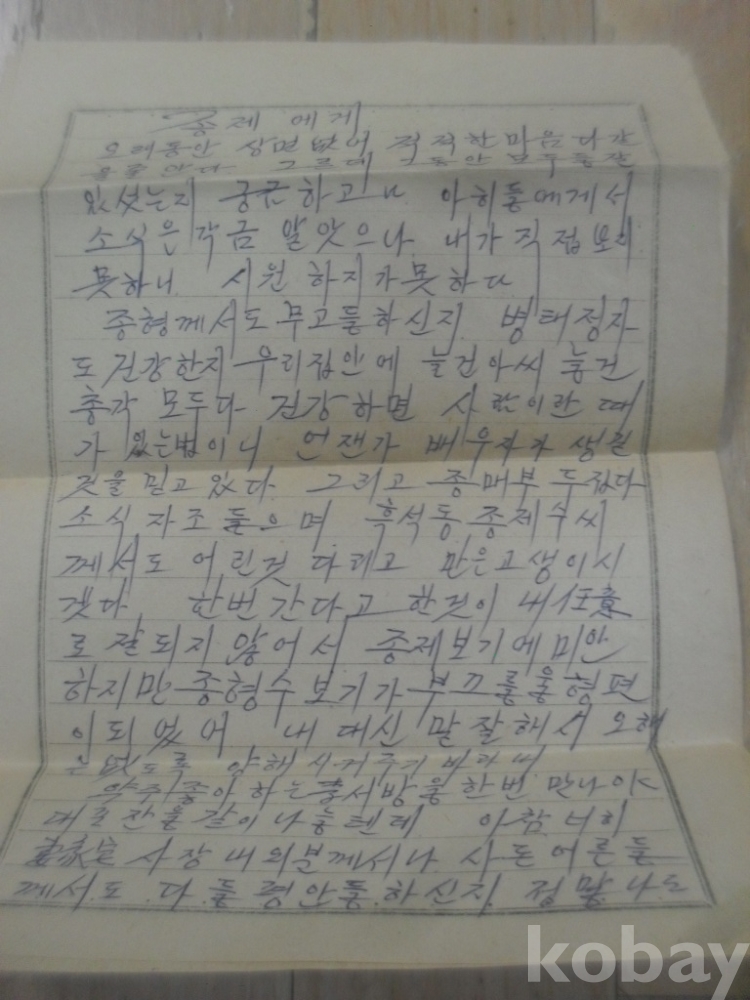 종제 에게
오래동안 상면없어 적적한마음다간
그동안 모두들잘
있섯는지 궁금하고나 아히들에게서
소식은 각금 알앗으나 내가 직접 보지
못하니 시원 하지가못하다
종형께서도 무고들하신지 병태정자
도 건강한지 우리집안에 늘건아씨 늙건
총각 모두다 건강하면 사람이란 때
가 있는법이니 언잰가 배우자가 생길
것을 믿고있다 그리고 종매부 두집다
소식 자조 들으며 흑석동 종제수씨
께서도 어린것 다리고 만은고생이시
겟다 한번 간다고 한것이 내 任意
로 잘되지 않어서 종제보기에미안
하지만 종형수보기가 부끄룽 형편
이되었어 내 대신 말잘해서 오해
는없도록 양해 시켜주기 바라며
약주좋아 하는 홍서방을한번 만나야
대포잔을같이나눌텐데 아참 너희
사장 내외분께서나 사돈어른들
께서도 다들령안들하신지 정말나도
kobay